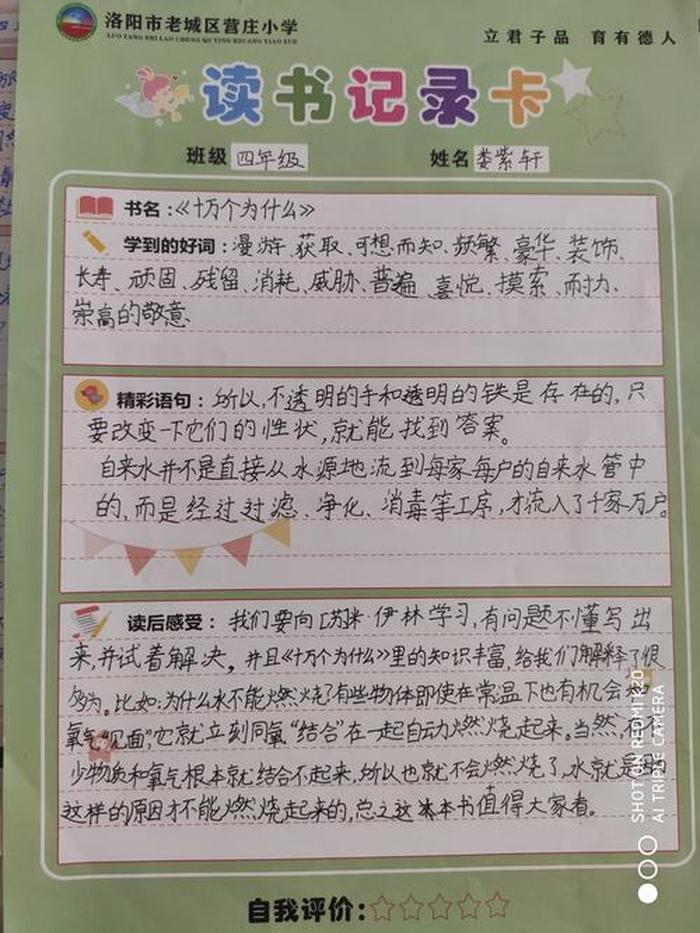 洛阳市老城区营庄小学
LUO YANG SHI LAO CHENG QU YING ZHUANG XIAO XUE
立君子品 育有德人
读书记录卡
班级 四年级 姓名 娄紫轩
书名：《十万个为什么》
学到的好词：漫游、获取、可想而知、频繁、豪华、装饰、
长寿、顽固、残留、消耗、威胁、普遍、喜悦、摸索、耐力、
崇高的敬意、
精彩语句：所以，不透明的手和透明的铁是存在的，只
要改变一下它们的性状，就能找到答案。
自来水并不是直接从水源地流到每家每户的自来水管中
的，而是经过过滤、净化、消毒等工序，才流入了千家万户。
读后感受：我们要向[苏]米·伊林学习，有问题不懂写出
来，并试着解决，并且《十万个为什么》里的知识丰富，给我们解释了很
多为。比如：为什么水不能燃烧？有些物体即使在常温下也有机会
氧气"见面"，它就立刻同氧"结合"在一起自动燃烧起来。当然，
少物质和氧气根本就结合不起来，所以也就不会燃烧了，水就是
这样的原因才不能燃烧起来的，总之这本书值得大家看。
自我评价：
SHOT ON REDMI K20
AI TRIPLE CAMERA